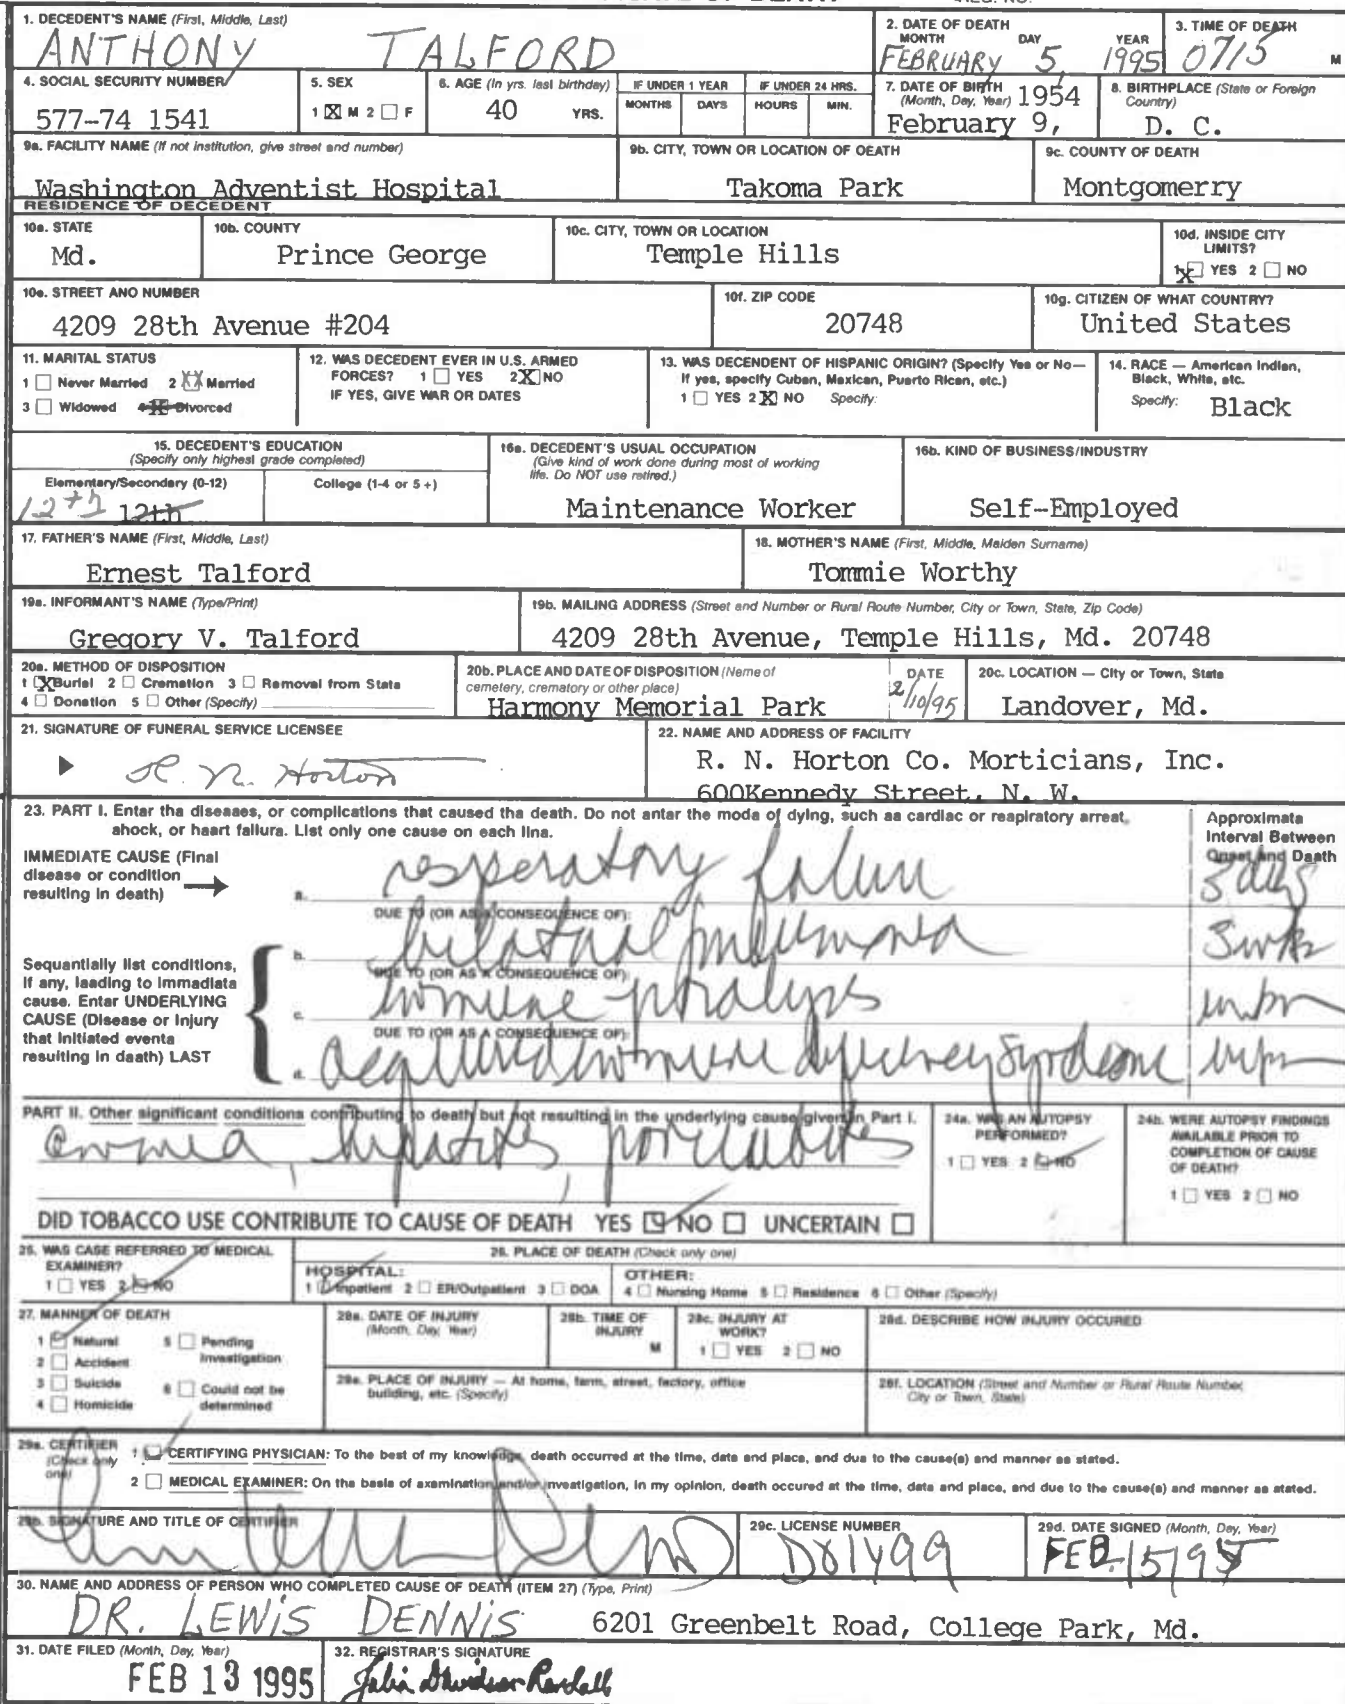 1. DECEDENT'S NAME (First, Middle, Last)
ANTHONY TALFORD
2. DATE OF DEATH
MONTH DAY YEAR
FEBRUARY 5, 1995
3. TIME OF DEATH
0715 M
4. SOCIAL SECURITY NUMBER
577-74 1541
5. SEX
1 ☒ M 2 ☐ F
6. AGE (In yrs. last birthday)
40 YRS.
IF UNDER 1 YEAR
MONTHS DAYS
IF UNDER 24 HRS.
HOURS MIN.
7. DATE OF BIRTH
(Month, Day, Year) 1954
February 9,
8. BIRTHPLACE (State or Foreign
Country)
D. C.
9a. FACILITY NAME (If not institution, give street and number)
Washington Adventist Hospital
9b. CITY, TOWN OR LOCATION OF DEATH
Takoma Park
9c. COUNTY OF DEATH
Montgomerry
RESIDENCE OF DECEDENT
10a. STATE
Md.
10b. COUNTY
Prince George
10c. CITY, TOWN OR LOCATION
Temple Hills
10d. INSIDE CITY
LIMITS?
1 ☒ YES 2 ☐ NO
10e. STREET AND NUMBER
4209 28th Avenue #204
10f. ZIP CODE
20748
10g. CITIZEN OF WHAT COUNTRY?
United States
11. MARITAL STATUS
1 ☐ Never Married 2 XX Married
3 ☐ Widowed 4 ☒ Divorced
12. WAS DECEDENT EVER IN U.S. ARMED
FORCES? 1 ☐ YES 2 ☒ NO
IF YES, GIVE WAR OR DATES
13. WAS DECENDENT OF HISPANIC ORIGIN? (Specify Yes or No—
If yes, specify Cuban, Mexican, Puerto Rican, etc.)
1 ☐ YES 2 ☒ NO Specify:
14. RACE — American Indian,
Black, White, etc.
Specify: Black
15. DECEDENT'S EDUCATION
(Specify only highest grade completed)
Elementary/Secondary (0-12) College (1-4 or 5+)
12th 12th
16a. DECEDENT'S USUAL OCCUPATION
(Give kind of work done during most of working
life. Do NOT use retired.)
Maintenance Worker
16b. KIND OF BUSINESS/INDUSTRY
Self-Employed
17. FATHER'S NAME (First, Middle, Last)
Ernest Talford
18. MOTHER'S NAME (First, Middle, Maiden Surname)
Tommie Worthy
19a. INFORMANT'S NAME (Type/Print)
Gregory V. Talford
19b. MAILING ADDRESS (Street and Number or Rural Route Number, City or Town, State, Zip Code)
4209 28th Avenue, Temple Hills, Md. 20748
20a. METHOD OF DISPOSITION
1 ☒ Burial 2 ☐ Cremation 3 ☐ Removal from State
4 ☐ Donation 5 ☐ Other (Specify)
20b. PLACE AND DATE OF DISPOSITION (Name of
cemetery, crematory or other place)
Harmony Memorial Park
DATE
2/10/95
20c. LOCATION — City or Town, State
Landover, Md.
21. SIGNATURE OF FUNERAL SERVICE LICENSEE
R. N. Horton
22. NAME AND ADDRESS OF FACILITY
R. N. Horton Co. Morticians, Inc.
600Kennedy Street, N. W.
23. PART I. Enter the diseases, or complications that caused the death. Do not enter the mode of dying, such as cardiac or respiratory arrest,
shock, or heart failure. List only one cause on each line.
Approximate
Interval Between
Onset and Death
IMMEDIATE CAUSE (Final
disease or condition
resulting in death)
a. respiratory failure 3 days
DUE TO (OR AS A CONSEQUENCE OF):
b. bilateral pneumonia 3 wks
DUE TO (OR AS A CONSEQUENCE OF):
Sequentially list conditions,
if any, leading to immediate
cause. Enter UNDERLYING
CAUSE (Disease or injury
that initiated events
resulting in death) LAST
c. immune paralysis
DUE TO (OR AS A CONSEQUENCE OF):
d. acquired immune deficiency syndrome
PART II. Other significant conditions contributing to death but not resulting in the underlying cause given in Part I.
anemia, hepatitis, pancreatitis
24a. WAS AN AUTOPSY
PERFORMED?
1 ☐ YES 2 ☑ NO
24b. WERE AUTOPSY FINDINGS
AVAILABLE PRIOR TO
COMPLETION OF CAUSE
OF DEATH?
1 ☐ YES 2 ☐ NO
DID TOBACCO USE CONTRIBUTE TO CAUSE OF DEATH YES ☑ NO ☐ UNCERTAIN ☐
25. WAS CASE REFERRED TO MEDICAL
EXAMINER?
1 ☐ YES 2 ☑ NO
26. PLACE OF DEATH (Check only one)
HOSPITAL:
1 ☑ Inpatient 2 ☐ ER/Outpatient 3 ☐ DOA
OTHER:
4 ☐ Nursing Home 5 ☐ Residence 6 ☐ Other (Specify)
27. MANNER OF DEATH
1 ☑ Natural 5 ☐ Pending
Investigation
2 ☐ Accident
3 ☐ Suicide 6 ☐ Could not be
determined
4 ☐ Homicide
28a. DATE OF INJURY
(Month, Day, Year)
28b. TIME OF
INJURY
M
28c. INJURY AT
WORK?
1 ☐ YES 2 ☐ NO
28d. DESCRIBE HOW INJURY OCCURED
28e. PLACE OF INJURY — At home, farm, street, factory, office
building, etc. (Specify)
28f. LOCATION (Street and Number or Rural Route Number,
City or Town, State)
29a. CERTIFIER
(Check only
one)
1 ☑ CERTIFYING PHYSICIAN: To the best of my knowledge, death occurred at the time, date and place, and due to the cause(s) and manner as stated.
2 ☐ MEDICAL EXAMINER: On the basis of examination and/or investigation, in my opinion, death occured at the time, date and place, and due to the cause(s) and manner as stated.
29b. SIGNATURE AND TITLE OF CERTIFIER
29c. LICENSE NUMBER
D01499
29d. DATE SIGNED (Month, Day, Year)
FEB. 15 1995
30. NAME AND ADDRESS OF PERSON WHO COMPLETED CAUSE OF DEATH (ITEM 27) (Type, Print)
DR. LEWIS DENNIS 6201 Greenbelt Road, College Park, Md.
31. DATE FILED (Month, Day, Year)
FEB 13 1995
32. REGISTRAR'S SIGNATURE